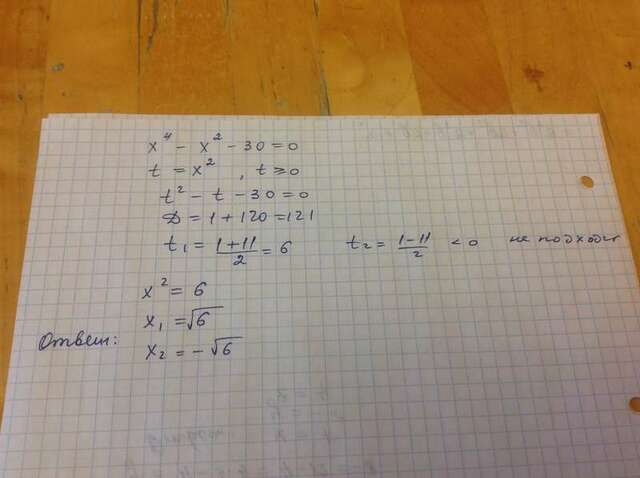 x⁴ - x² - 30 = 0
t = x² , t ≥ 0
t² - t - 30 = 0
D = 1 + 120 = 121
t₁ = (1+11)/2 = 6 t₂ = (1-11)/2 < 0 не подходит
x² = 6
x₁ = √6
Ответ:
x₂ = -√6